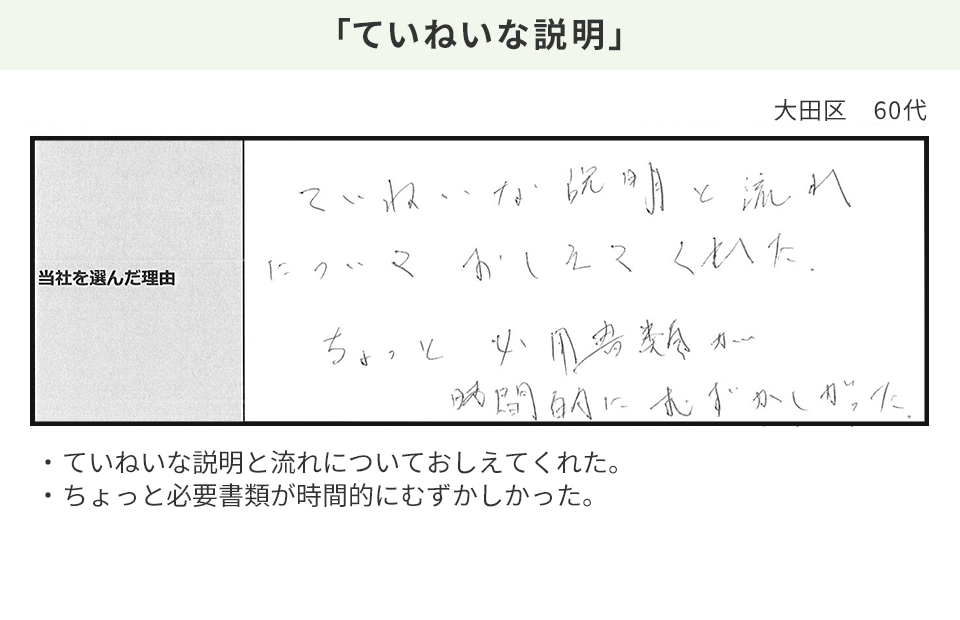 「ていねいな説明」
大田区　60代
当社を選んだ理由
ていねいな説明と流れ
についておしえてくれた.
ちょっと必用書類が
時間的にむずかしかった.
・ていねいな説明と流れについておしえてくれた。
・ちょっと必要書類が時間的にむずかしかった。